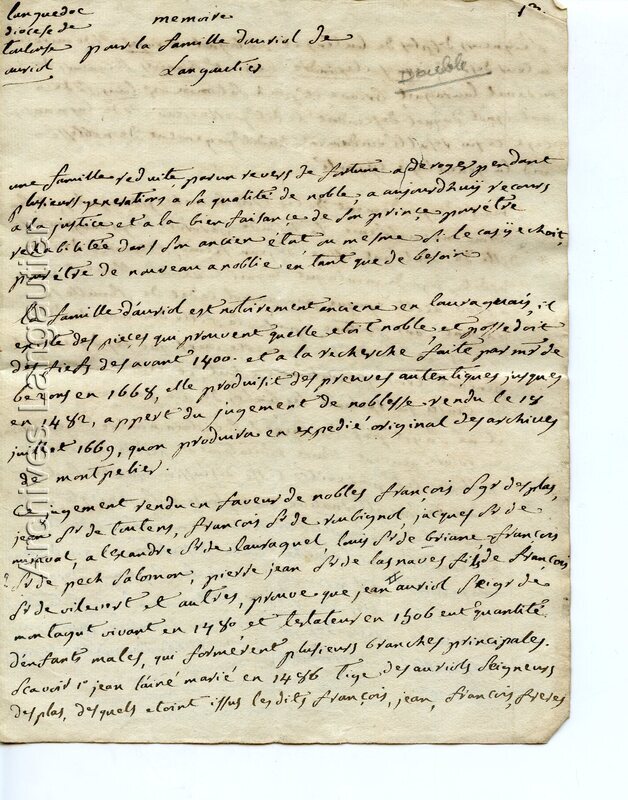 languedoc
diocese de
toulouse
auriol
memoire
pour la famille dauriol de
Langautier
Double
1er.
une famille reduite, par un revers de fortune a déroger pendant
plusieurs generations a sa qualité de noble, a aujourdhuÿ recours
a la justice et a la bienfaisance de son prince pour être
rehabilitée dans son ancien état ou mesme si le cas ÿ echoit,
pour être de nouveau anoblie en tant que de besoin
la famille dauriol est notoirement anciene en lauraguais, il
existe des pieces qui prouvent quelle etoit noble, et possedoit
des fiefs des avant 1400. et a la recherche faite par mr. de
bezons en 1668, elle produisit des preuves autentiques jusques
en 1482, appert du jugement de noblesse rendu le 18
juillet 1669, quon produira en expedié original des archives
de montpelier.
Ce jugement rendu en faveur de nobles françois sgr desplas,
jean sr de toutens, françois sr de roubignol, jacques sr de
mireval, alexandre sr de lauraguel, louis sr de briane françois
sr de pech salomon, pierre jean sr de lasnaves fils de françois
sr de vilevert et autres, prouve que jean II auriol seigr de
montagut vivant en 1480 et testateur en 1506 eut quantité
d'enfants males, qui formèrent plusieurs branches principales.
Scavoir 1° jean l'ainé marié en 1486 tige des auriols seigneurs
des plas, desquels etoint issus lesdits françois, jean, françois, freres
Archives Langautier